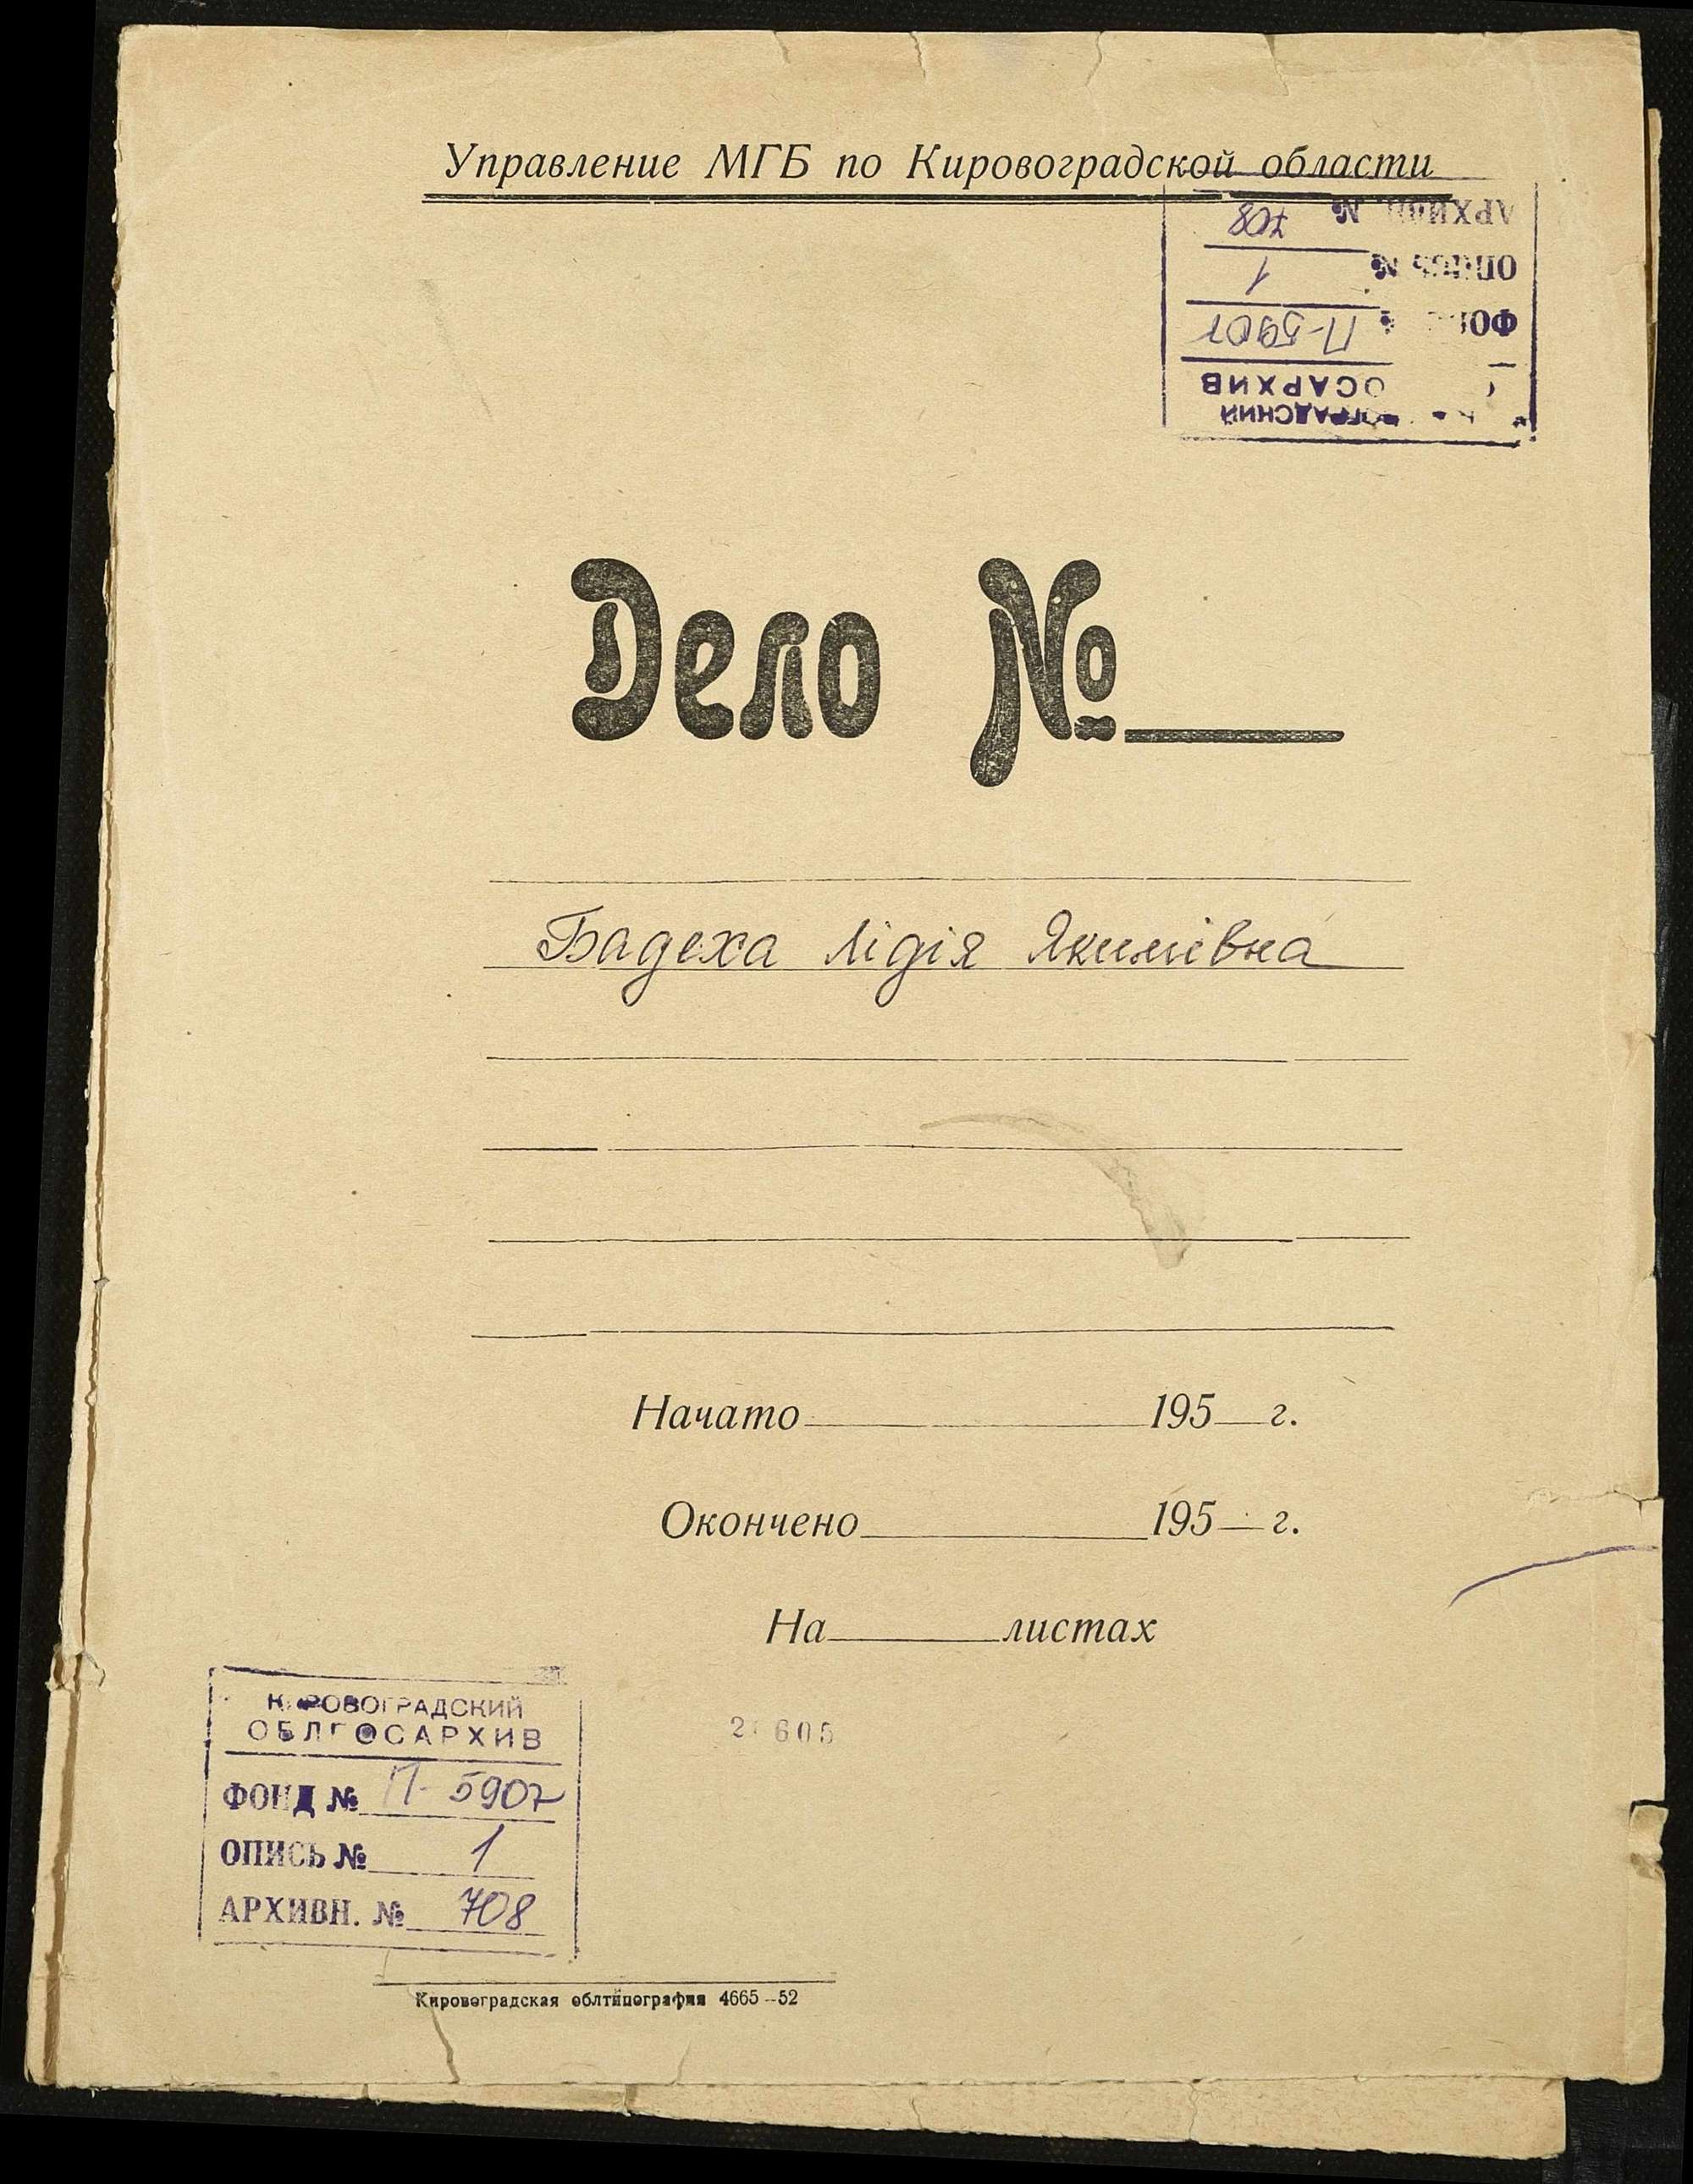 Управление МГБ по Кировоградской области
АРХИВН. № 708
ОПИСЬ № 1
ФОНД № П-5907
ОСАРХИВ
ОГРАДСКИЙ
Дело №
Бадеха Лідія Якимівна
Начато 195 г.
Окончено 195 г.
На листах
КИРОВОГРАДСКИЙ
ОБЛГОСАРХИВ
ФОНД № П-5907
ОПИСЬ № 1
АРХИВН. № 708
Кировоградская облтипография 4665-52